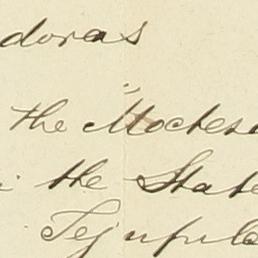 doras
the "Moctes
the State
Tejupilc